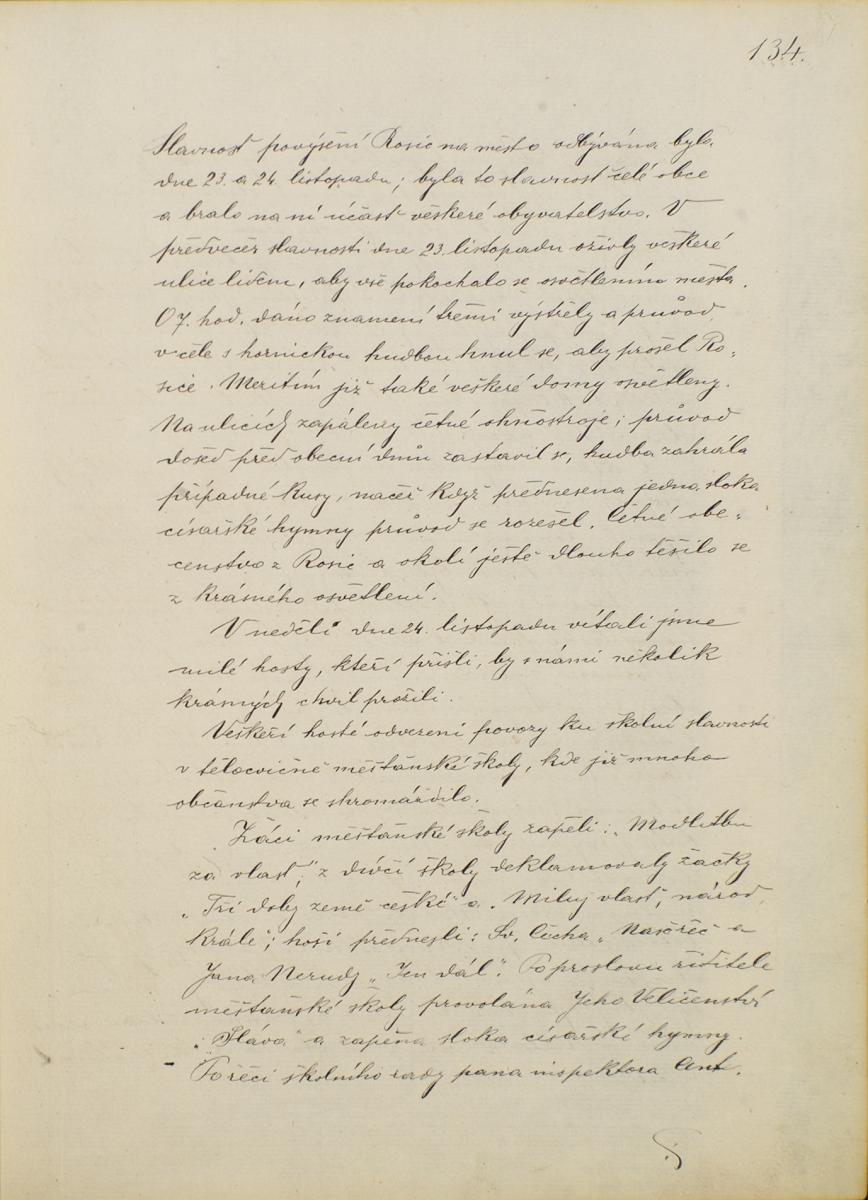 134.
Slavnost povýšení Rosic na město odbývána byla
dne 23. a 24. listopadu; byla to slavnost celé obce
a bralo na ní účast veškeré obyvatelstvo. V
předvečer slavnosti dne 23. listopadu ožily veškeré
ulice lidem, aby vše pokochalo se osvětlením města.
O 7. hod. dáno znamení třemi výstřely a průvod
v čele s hornickou hudbou hnul se, aby prošel Ro-
sice. Mezitím již také veškeré domy osvětleny.
Na ulicích zapáleny četné ohňostroje; průvod
došed před obecní dům zastavil se, hudba zahrála
případné kusy, načež když přednesena jedna sloka
císařské hymny průvod se rozešel. Četné obe-
censtvo z Rosic a okolí ještě dlouho těšilo se
z krásného osvětlení.
V neděli dne 24. listopadu vítali jsme
milé hosty, kteří přišli, by s námi několik
krásných chvil prožili.
Veškeří hosté odvezeni povozy ku školní slavnosti
v tělocvičně měšťanské školy, kde již mnoho
občanstva se shromáždilo.
Žáci měšťanské školy zapěli: „Modlitbu
za vlast," z dívčí školy deklamovaly žačky
„Tři doby země české" a „Miluj vlast, národ,
krále"; hoši přednesli: Sv. Čecha „Naší řeč" a
Jana Nerudy „Jen dál". Po proslovu ředitele
měšťanské školy provolána Jeho Veličenství
„Sláva" a zapěna sloka císařské hymny.
Po řeči školního rady pana inspektora Ant.